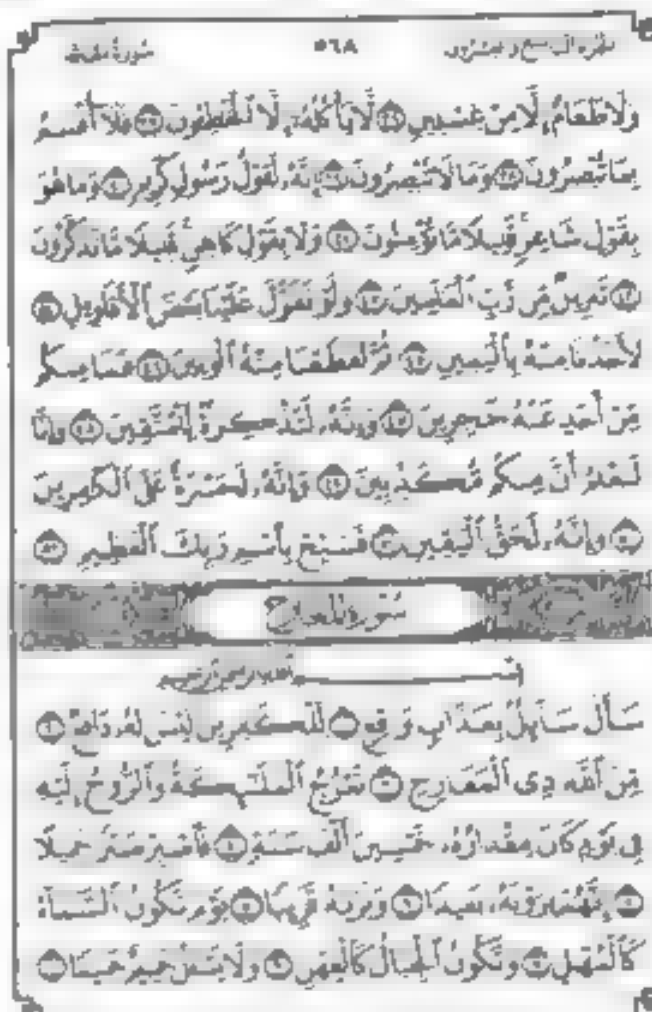 الجزء التاسع والعشرون ٥٦٨ سورة
وَلَا طَعَامٌ إِلَّا مِنْ غِسْلِينٍ ٣٦ لَّا يَأْكُلُهُۥٓ إِلَّا ٱلْخَٰطِـُٔونَ ٣٧ فَلَآ أُقْسِمُ
بِمَا تُبْصِرُونَ ٣٨ وَمَا لَا تُبْصِرُونَ ٣٩ إِنَّهُۥ لَقَوْلُ رَسُولٍ كَرِيمٍ ٤٠ وَمَا هُوَ
بِقَوْلِ شَاعِرٍ قَلِيلًا مَّا تُؤْمِنُونَ ٤١ وَلَا بِقَوْلِ كَاهِنٍ قَلِيلًا مَّا تَذَكَّرُونَ
٤٢ تَنزِيلٌ مِّن رَّبِّ ٱلْعَٰلَمِينَ ٤٣ وَلَوْ تَقَوَّلَ عَلَيْنَا بَعْضَ ٱلْأَقَاوِيلِ ٤٤
لَأَخَذْنَا مِنْهُ بِٱلْيَمِينِ ٤٥ ثُمَّ لَقَطَعْنَا مِنْهُ ٱلْوَتِينَ ٤٦ فَمَا مِنكُم
مِّنْ أَحَدٍ عَنْهُ حَٰجِزِينَ ٤٧ وَإِنَّهُۥ لَتَذْكِرَةٌ لِّلْمُتَّقِينَ ٤٨ وَإِنَّا
لَنَعْلَمُ أَنَّ مِنكُم مُّكَذِّبِينَ ٤٩ وَإِنَّهُۥ لَحَسْرَةٌ عَلَى ٱلْكَٰفِرِينَ
٥٠ وَإِنَّهُۥ لَحَقُّ ٱلْيَقِينِ ٥١ فَسَبِّحْ بِٱسْمِ رَبِّكَ ٱلْعَظِيمِ ٥٢
سُورَةُ المَعَارِجِ
بِسْمِ ٱللَّهِ ٱلرَّحْمَٰنِ ٱلرَّحِيمِ
سَأَلَ سَآئِلٌۢ بِعَذَابٍ وَاقِعٍ ١ لِّلْكَٰفِرِينَ لَيْسَ لَهُۥ دَافِعٌ ٢
مِّنَ ٱللَّهِ ذِى ٱلْمَعَارِجِ ٣ تَعْرُجُ ٱلْمَلَٰٓئِكَةُ وَٱلرُّوحُ إِلَيْهِ
فِى يَوْمٍ كَانَ مِقْدَارُهُۥ خَمْسِينَ أَلْفَ سَنَةٍ ٤ فَٱصْبِرْ صَبْرًا جَمِيلًا
٥ إِنَّهُمْ يَرَوْنَهُۥ بَعِيدًا ٦ وَنَرَىٰهُ قَرِيبًا ٧ يَوْمَ تَكُونُ ٱلسَّمَآءُ
كَٱلْمُهْلِ ٨ وَتَكُونُ ٱلْجِبَالُ كَٱلْعِهْنِ ٩ وَلَا يَسْـَٔلُ حَمِيمٌ حَمِيمًا ١٠